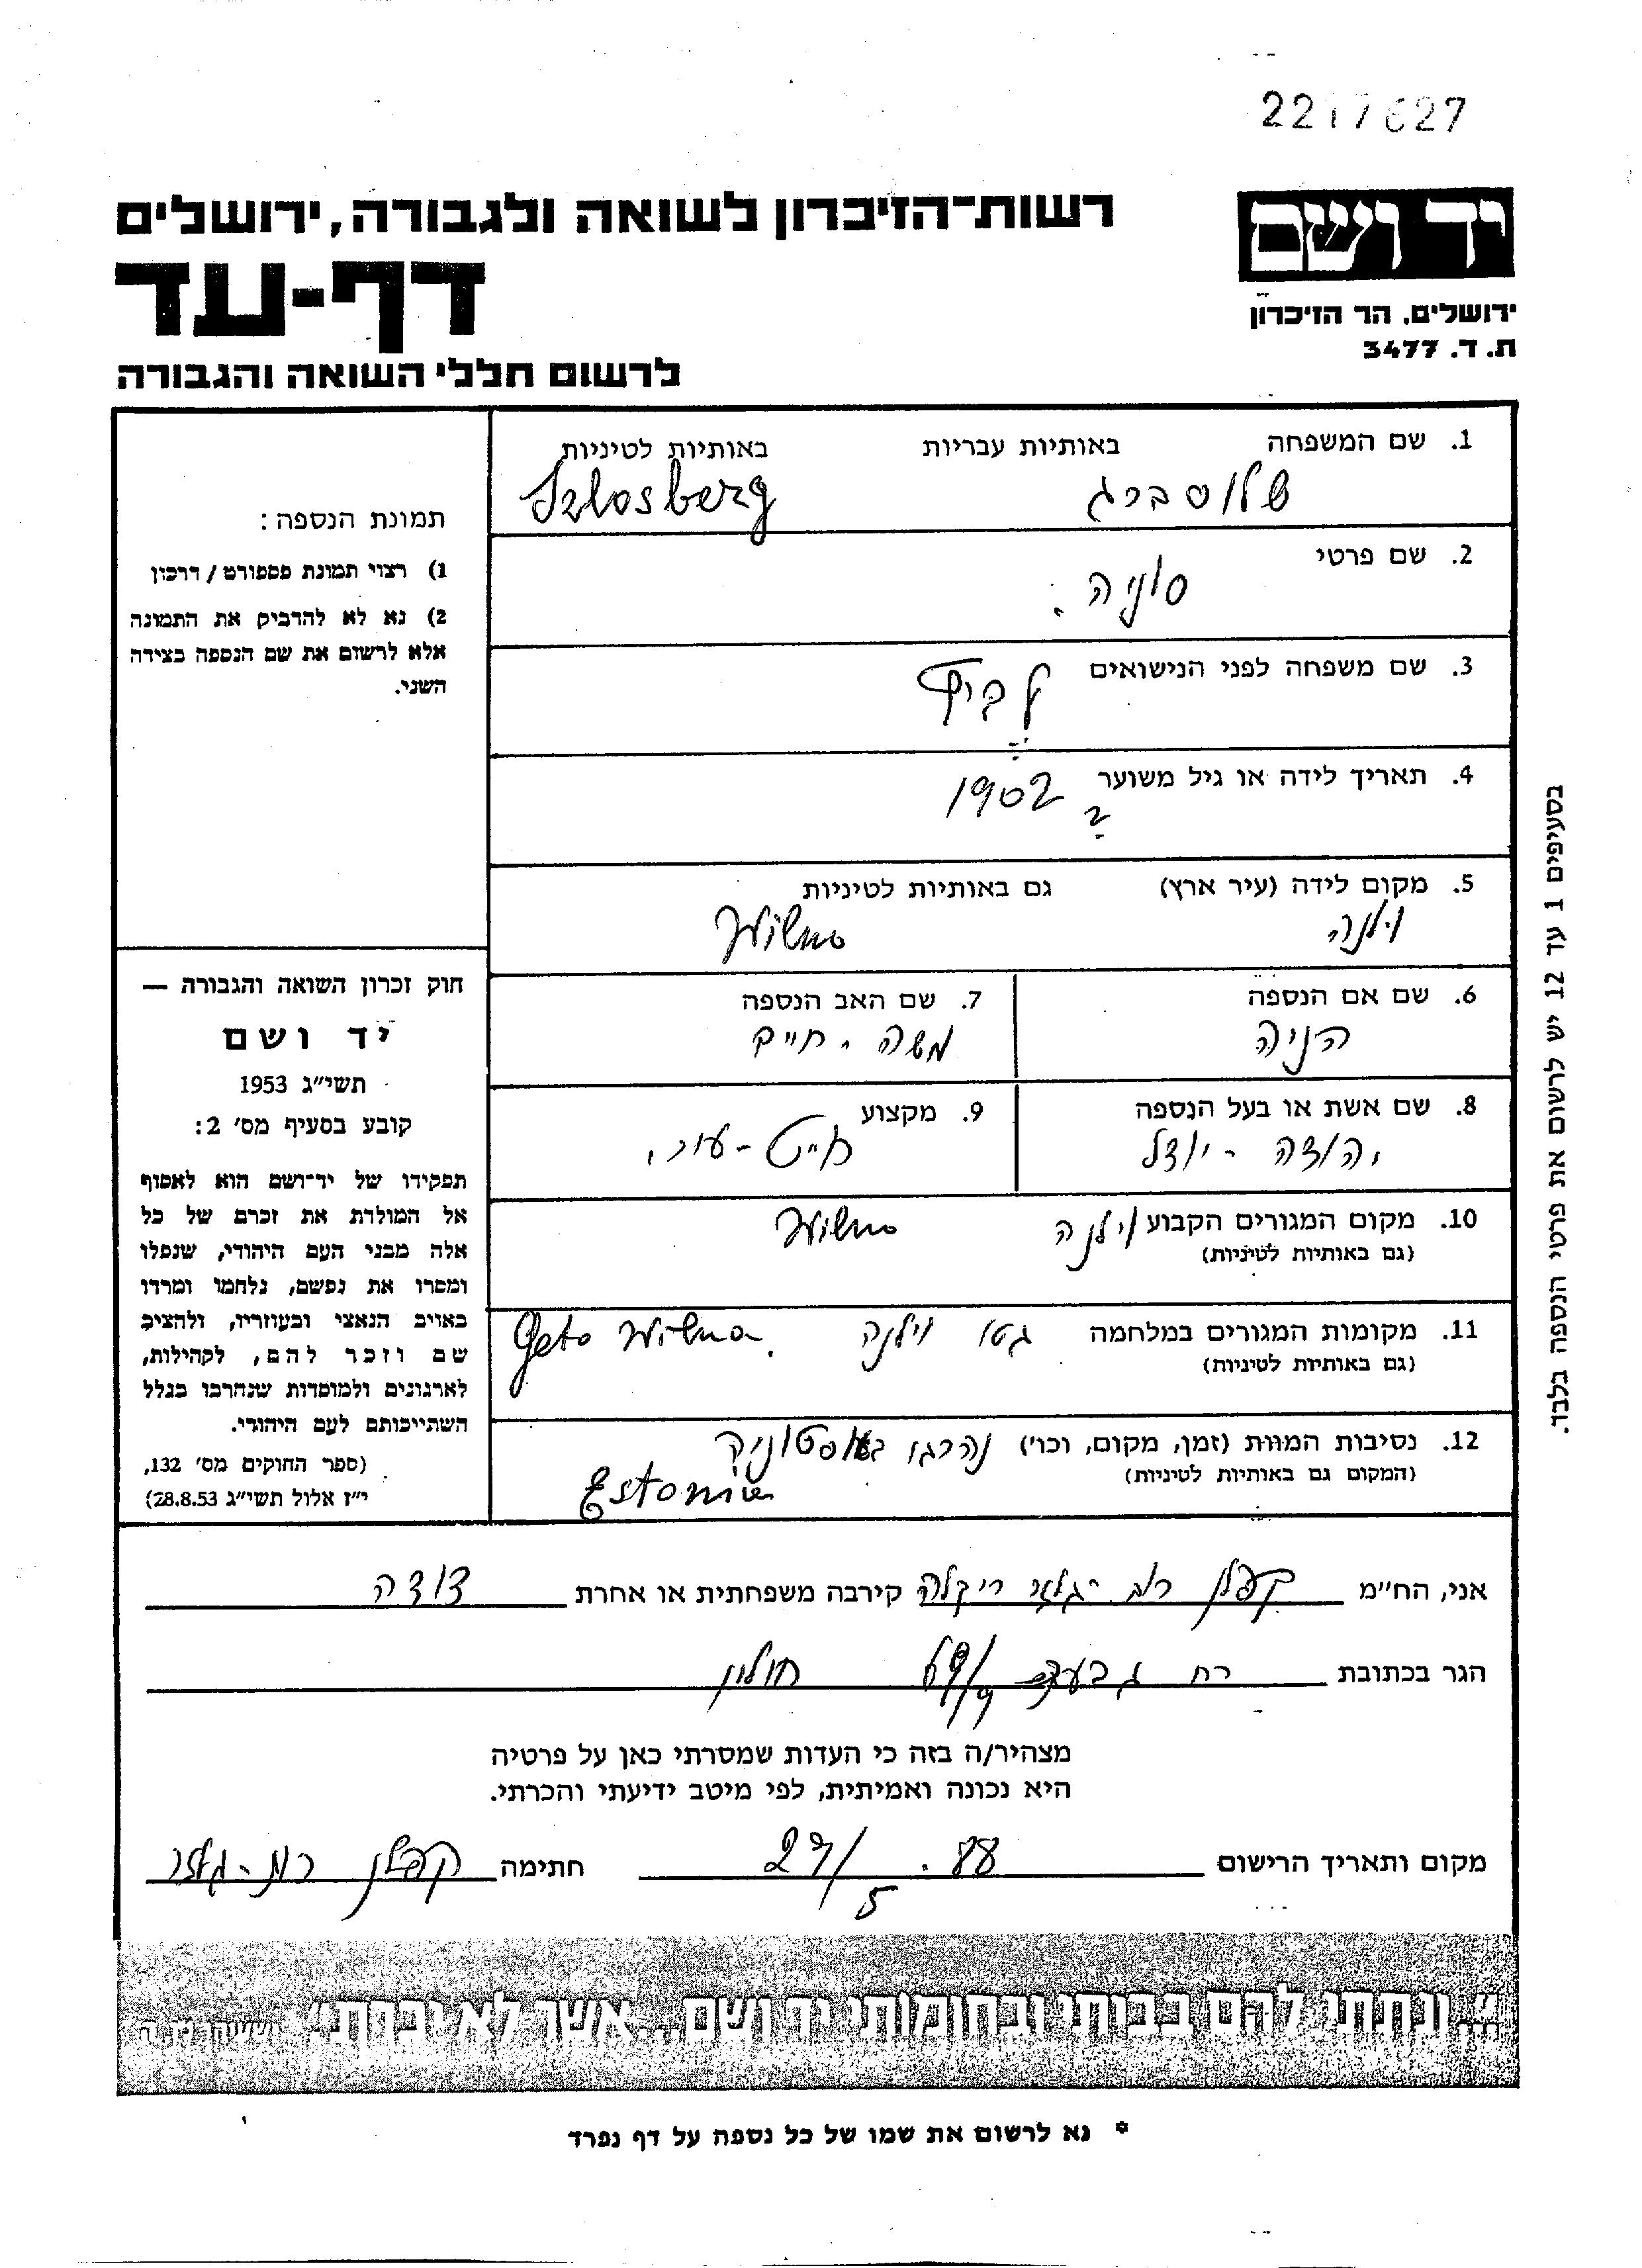 2217627
יד ושם
רשות־הזיכרון לשואה ולגבורה, ירושלים
דף-עד
ירושלים, הר הזיכרון
ת. ד. 3477
לרשום חללי השואה והגבורה
1. שם המשפחה באותיות עבריות באותיות לטיניות
שלוסברג Szlosberg
2. שם פרטי
סוניה
3. שם משפחה לפני הנישואים
4. תאריך לידה או גיל משוער 1902
5. מקום לידה (עיר ארץ) גם באותיות לטיניות
וילנה Wilno
6. שם אם הנספה
7. שם האב הנספה
משה - חיים
8. שם אשת או בעל הנספה
יהודה - יודל
9. מקצוע
10. מקום המגורים הקבוע וילנה Wilno
(גם באותיות לטיניות)
11. מקומות המגורים במלחמה גטו וילנה Geto Wilna
(גם באותיות לטיניות)
12. נסיבות המוות (זמן, מקום, וכו') נהרגו באסטוניה
(המקום גם באותיות לטיניות) Estonia
תמונת הנספה:
1) רצוי תמונת פספורט / דרכון
2) נא לא להדביק את התמונה
אלא לרשום את שם הנספה בצידה
השני.
חוק זכרון השואה והגבורה —
יד ושם
תשי״ג 1953
קובע בסעיף מס׳ 2:
תפקידו של יד־ושם הוא לאסוף
אל המולדת את זכרם של כל
אלה מבני העם היהודי, שנפלו
ומסרו את נפשם, נלחמו ומרדו
באויב הנאצי ובעוזריו, ולהציב
שם וזכר להם, לקהילות,
לארגונים ולמוסדות שנחרבו בגלל
השתייכותם לעם היהודי.
(ספר החוקים מס׳ 132,
י״ז אלול תשי״ג 28.8.53)
בסעיפים 1 עד 12 יש לרשום את פרטי הנספה בלבד.
אני, הח״מ קפלן קירבה משפחתית או אחרת דודה
הגר בכתובת רח 69/9 חולון
מצהיר/ה בזה כי העדות שמסרתי כאן על פרטיה
היא נכונה ואמיתית, לפי מיטב ידיעתי והכרתי.
מקום ותאריך הרישום 27/5.88 חתימה קפלן
״...ונתתי להם בביתי ובחומותי יד ושם...אשר לא יכרת״ ישעיהו נו, ה
* נא לרשום את שמו של כל נספה על דף נפרד